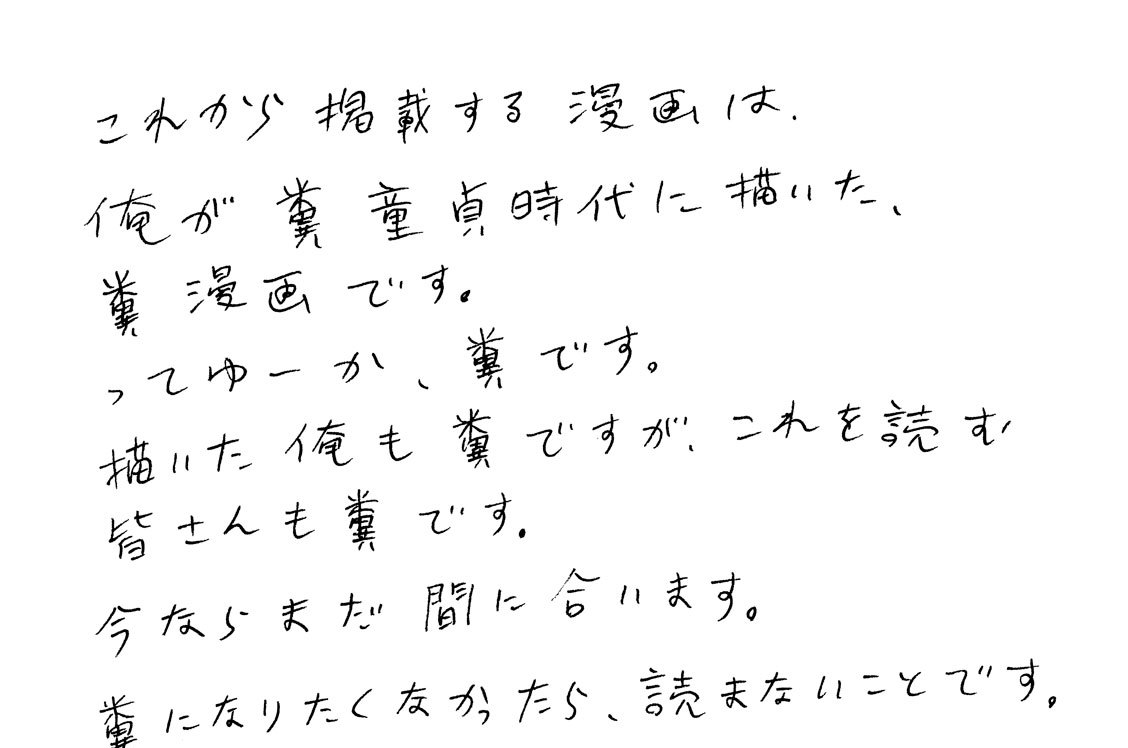 これから掲載する漫画は、
俺が糞童貞時代に描いた、
糞漫画です。
ってゆーか、糞です。
描いた俺も糞ですが、これを読む
皆さんも糞です。
今ならまだ間に合います。
糞になりたくなかったら、読まないことです。